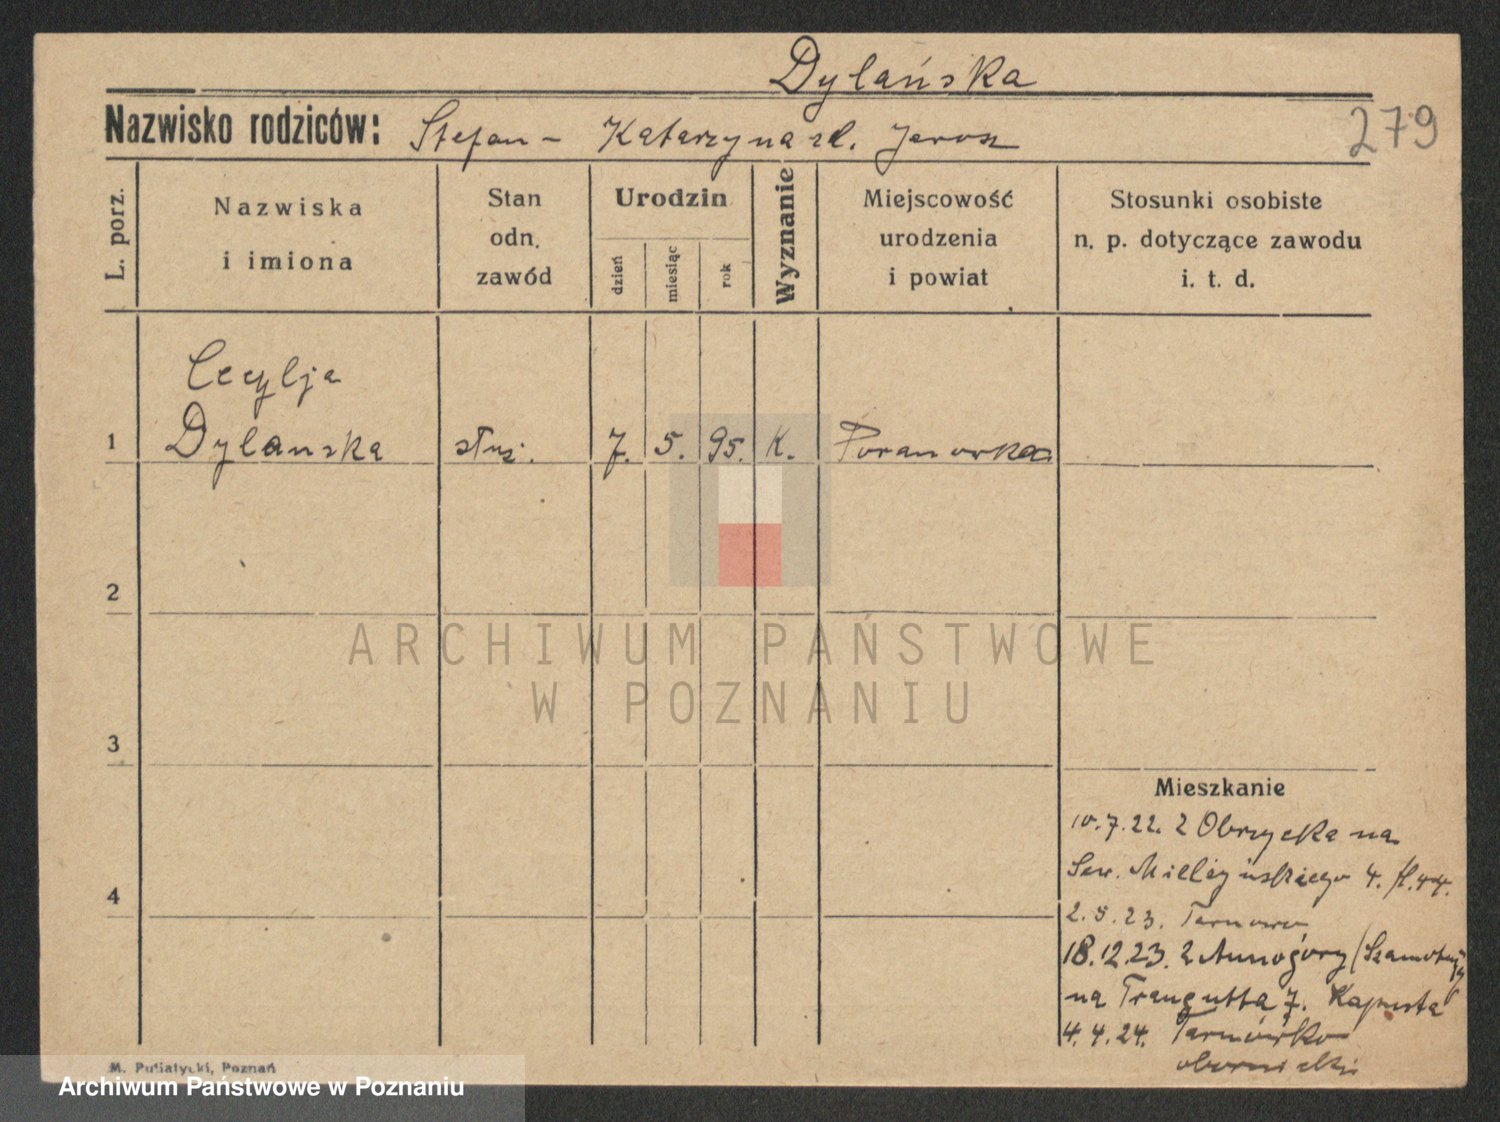 Dylańska
279
Nazwisko rodziców: Stefan - Katarzyna zd. Jarosz
L. porz.
Nazwiska
i imiona
Stan
odn.
zawód
Urodzin
dzień
miesiąc
rok
Wyznanie
Miejscowość
urodzenia
i powiat
Stosunki osobiste
n. p. dotyczące zawodu
i. t. d.
1
Cecylja
Dylanska
służ.
7.
5.
95.
K.
2
3
4
ARCHIWUM PAŃSTWOWE
W POZNANIU
Mieszkanie
10.7.22. z Obrzycka na
Sew. Mielżyńskiego 4.
2.5.23. Tarnowo
18.12.23. z Annogóry (Szamotuły)
na Traugutta 7. Kapusta
4.4.24. Tarnówko
obornicki
M. Putiatycki, Poznań
Archiwum Państwowe w Poznaniu